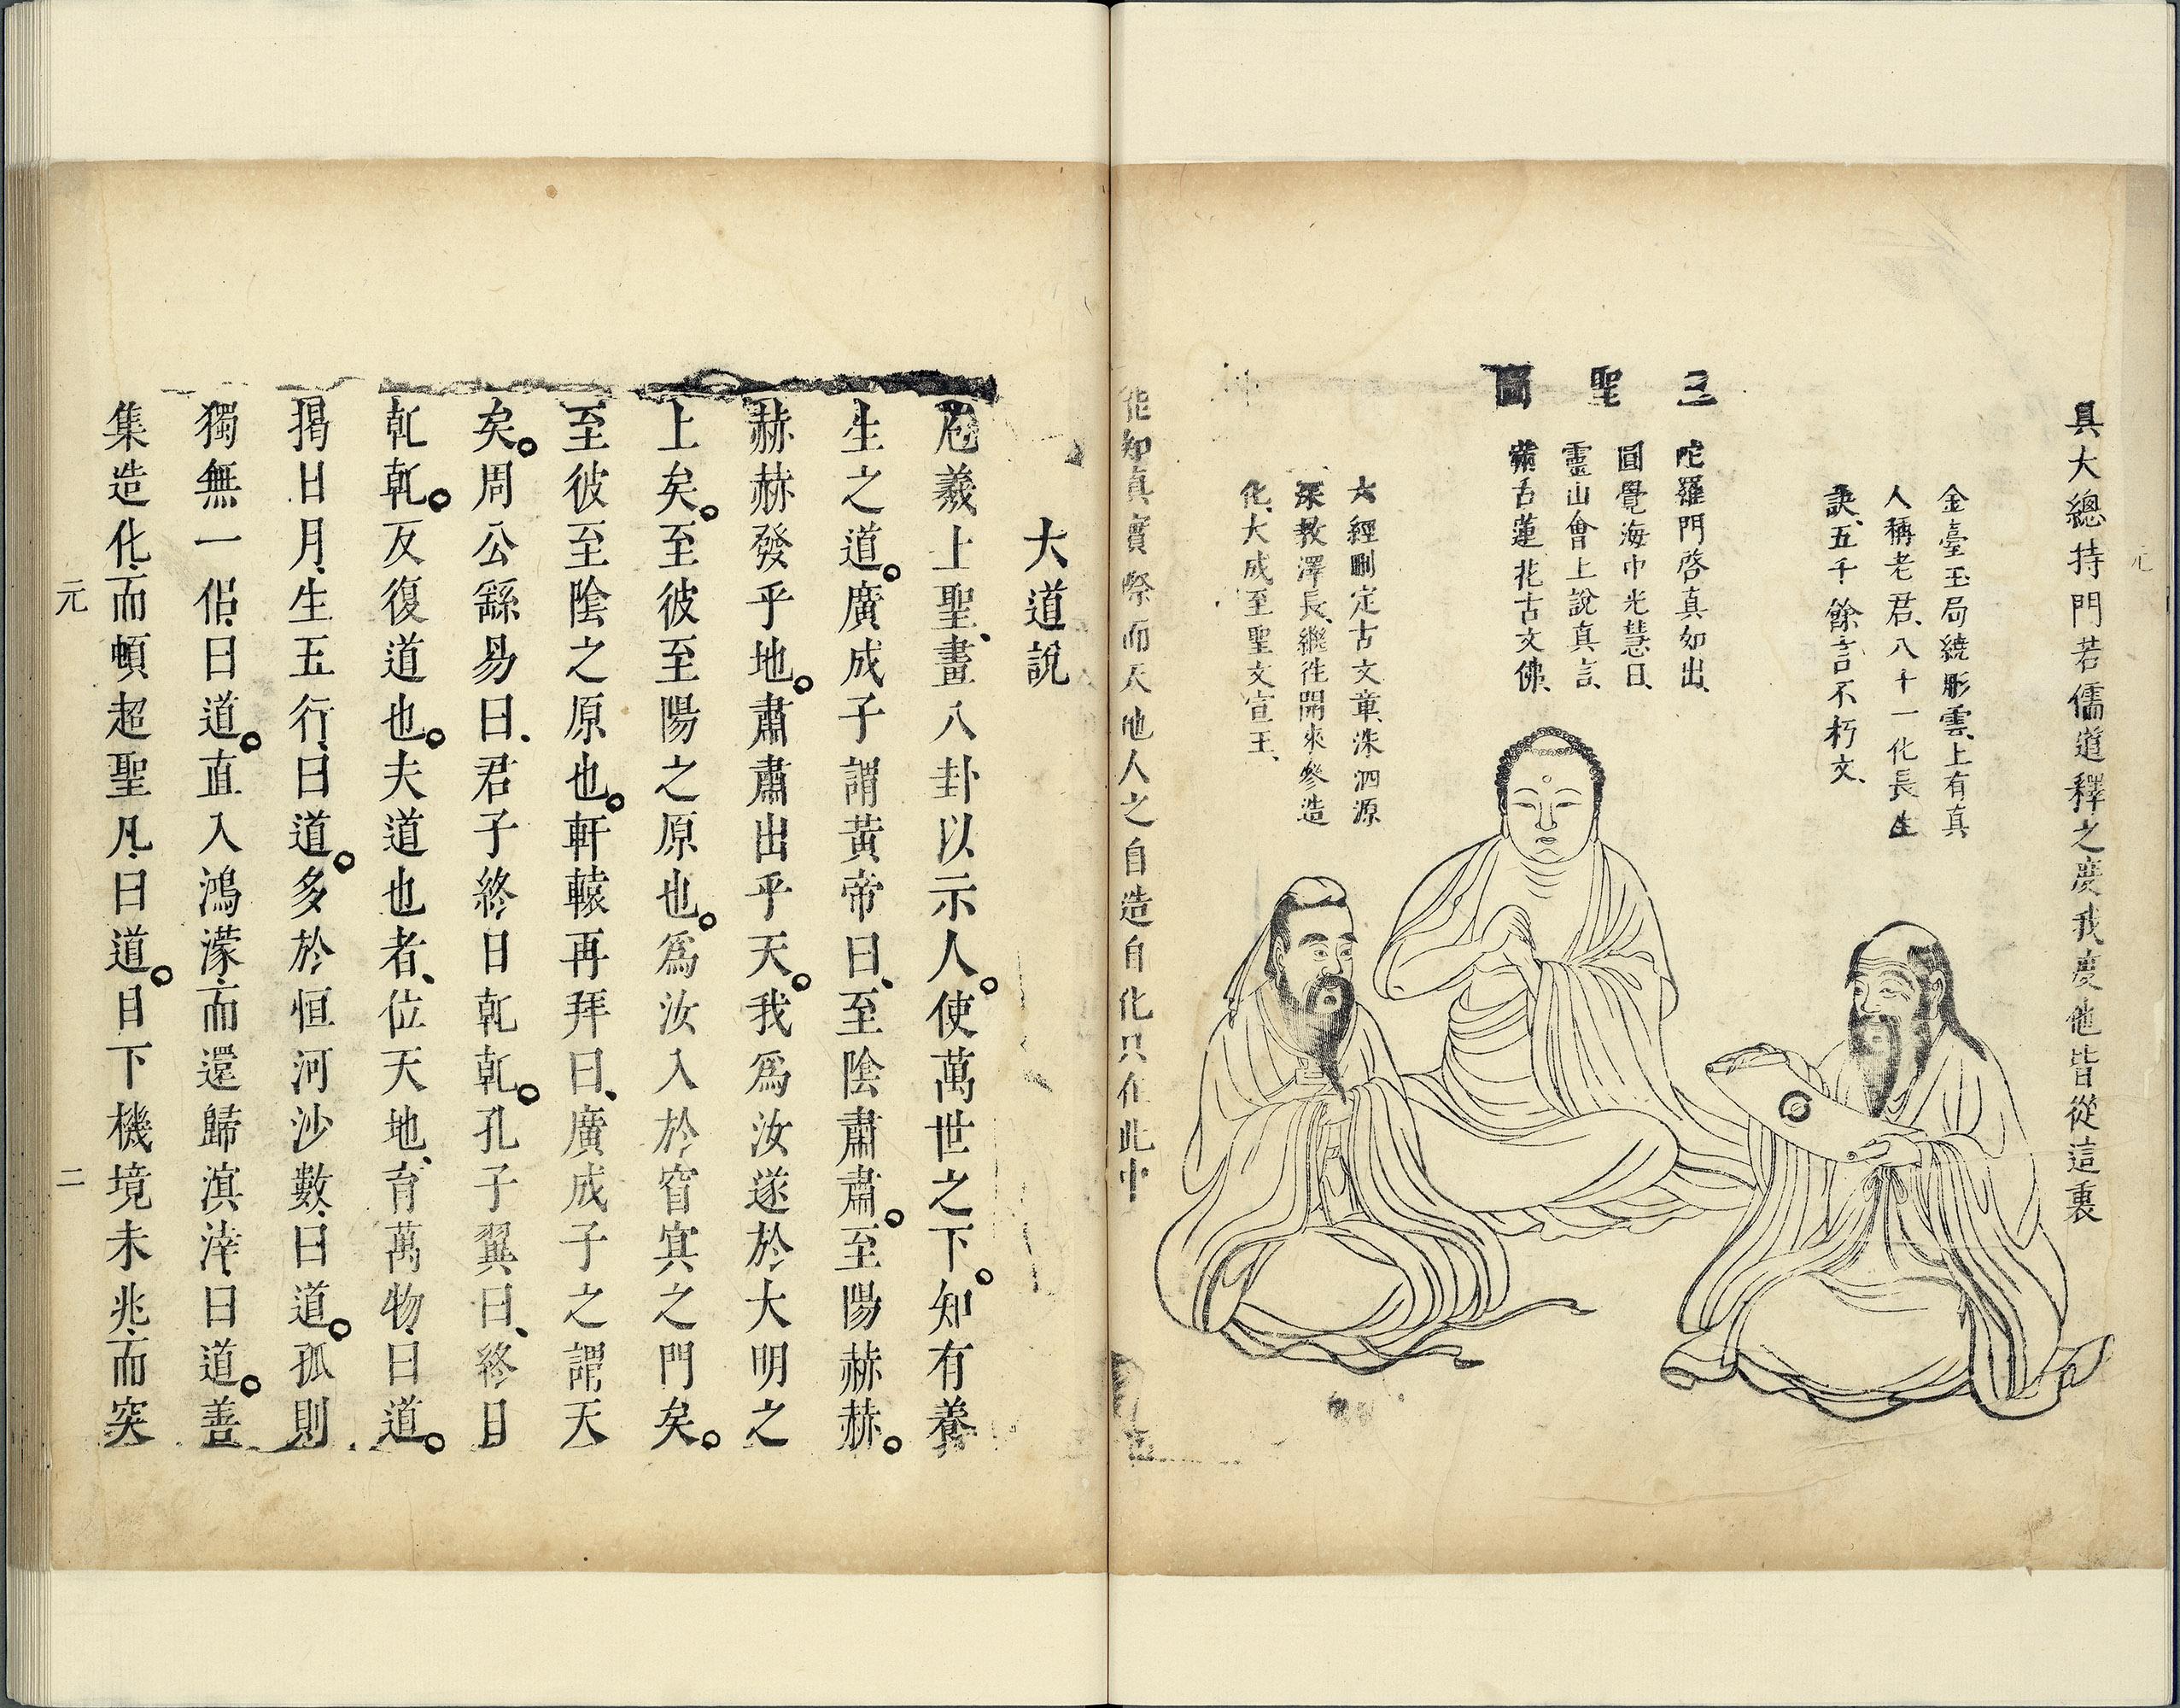 具大總持門若儒道釋之度我度他皆從這裏
金臺玉局繞彤雲、上有真
人稱老君、八十一化長生
訣、五千餘言不朽文、
三聖圖
陀羅門啓真如出、
圓覺海中光慧日、
靈山會上說真言、
滿舌蓮花古文佛、
六經刪定古文章、洙泗源
深教澤長、繼徃開來參造
化、大成至聖文宣王、
能知真實際而天地人之自造自化只在此中
大道說
庖羲上聖、畫八卦以示人。使萬世之下。知有養
生之道。廣成子謂黃帝曰、至陰肅肅。至陽赫赫。
赫赫發乎地。肅肅出乎天。我爲汝遂於大明之
上矣。至彼至陽之原也。爲汝入於窅冥之門矣。
至彼至陰之原也。軒轅再拜曰、廣成子之謂天
矣。周公繇易曰、君子終日乾乾。孔子翼曰、終日
乾乾。反復道也。夫道也者、位天地、育萬物、曰道。
揭日月、生五行、曰道。多於恒河沙數、曰道。孤則
獨無一侶、曰道。直入鴻濛、而還歸溟涬、曰道。善
集造化、而頓超聖凡、曰道。目下機境未兆、而突
元
二
元